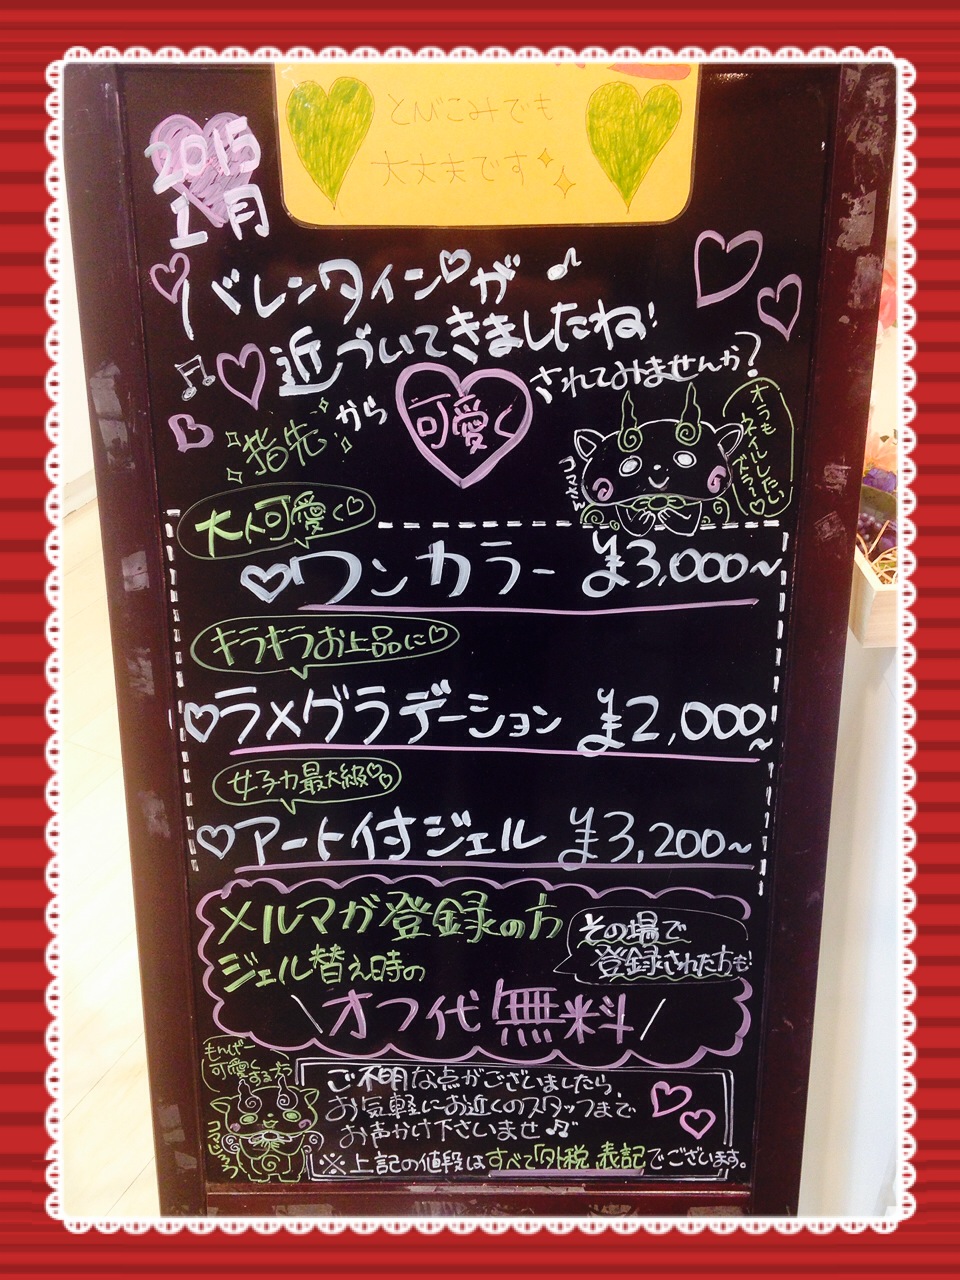 とびこみでも
大丈夫です
2015
1月
バレンタインが
近づいてきましたね!
指先から可愛くされてみませんか?
オラも
ネイルしたい
ズラ〜
コマさん
大人可愛く
ワンカラー ¥3,000〜
キラキラお上品に
ラメグラデーション ¥2,000〜
女子力最大級
アート付ジェル ¥3,200〜
メルマガ登録の方
ジェル替え時の
その場で
登録された方も!
\オフ代無料/
もんげー
可愛く
するずら
コマじろう
ご不明な点がございましたら、
お気軽にお近くのスタッフまで
お声かけ下さいませ♫
※上記の値段はすべて「外税」表記でございます。